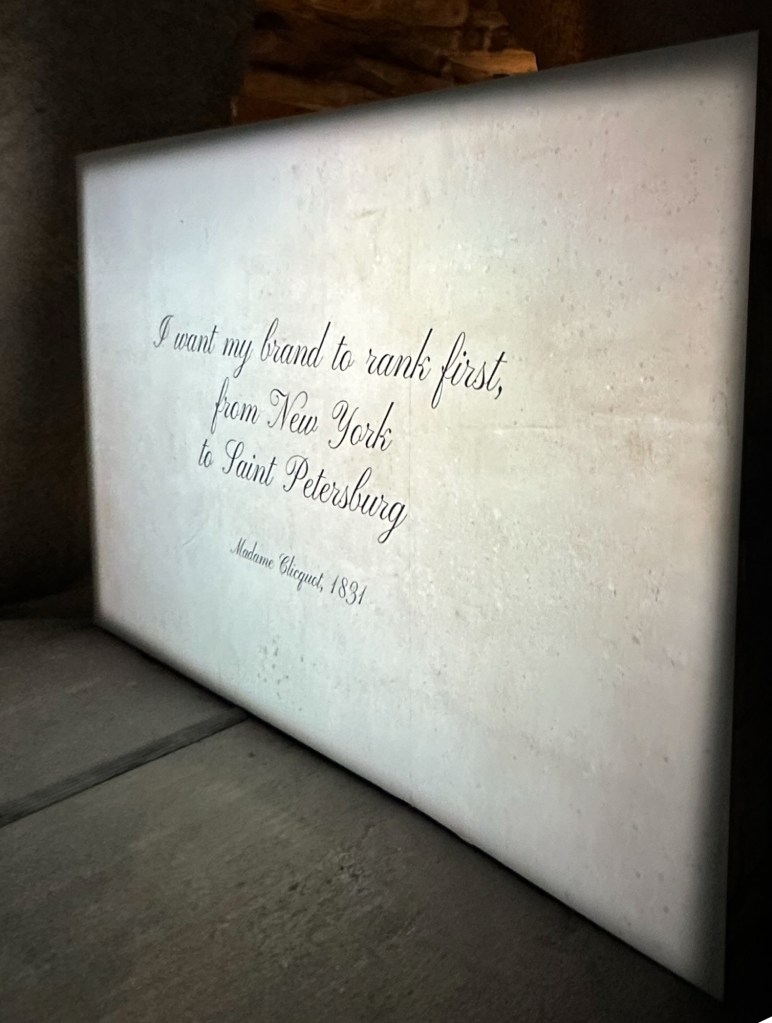 I want my brand to rank first,
from New York
to Saint Petersburg
Madame Clicquot, 1831